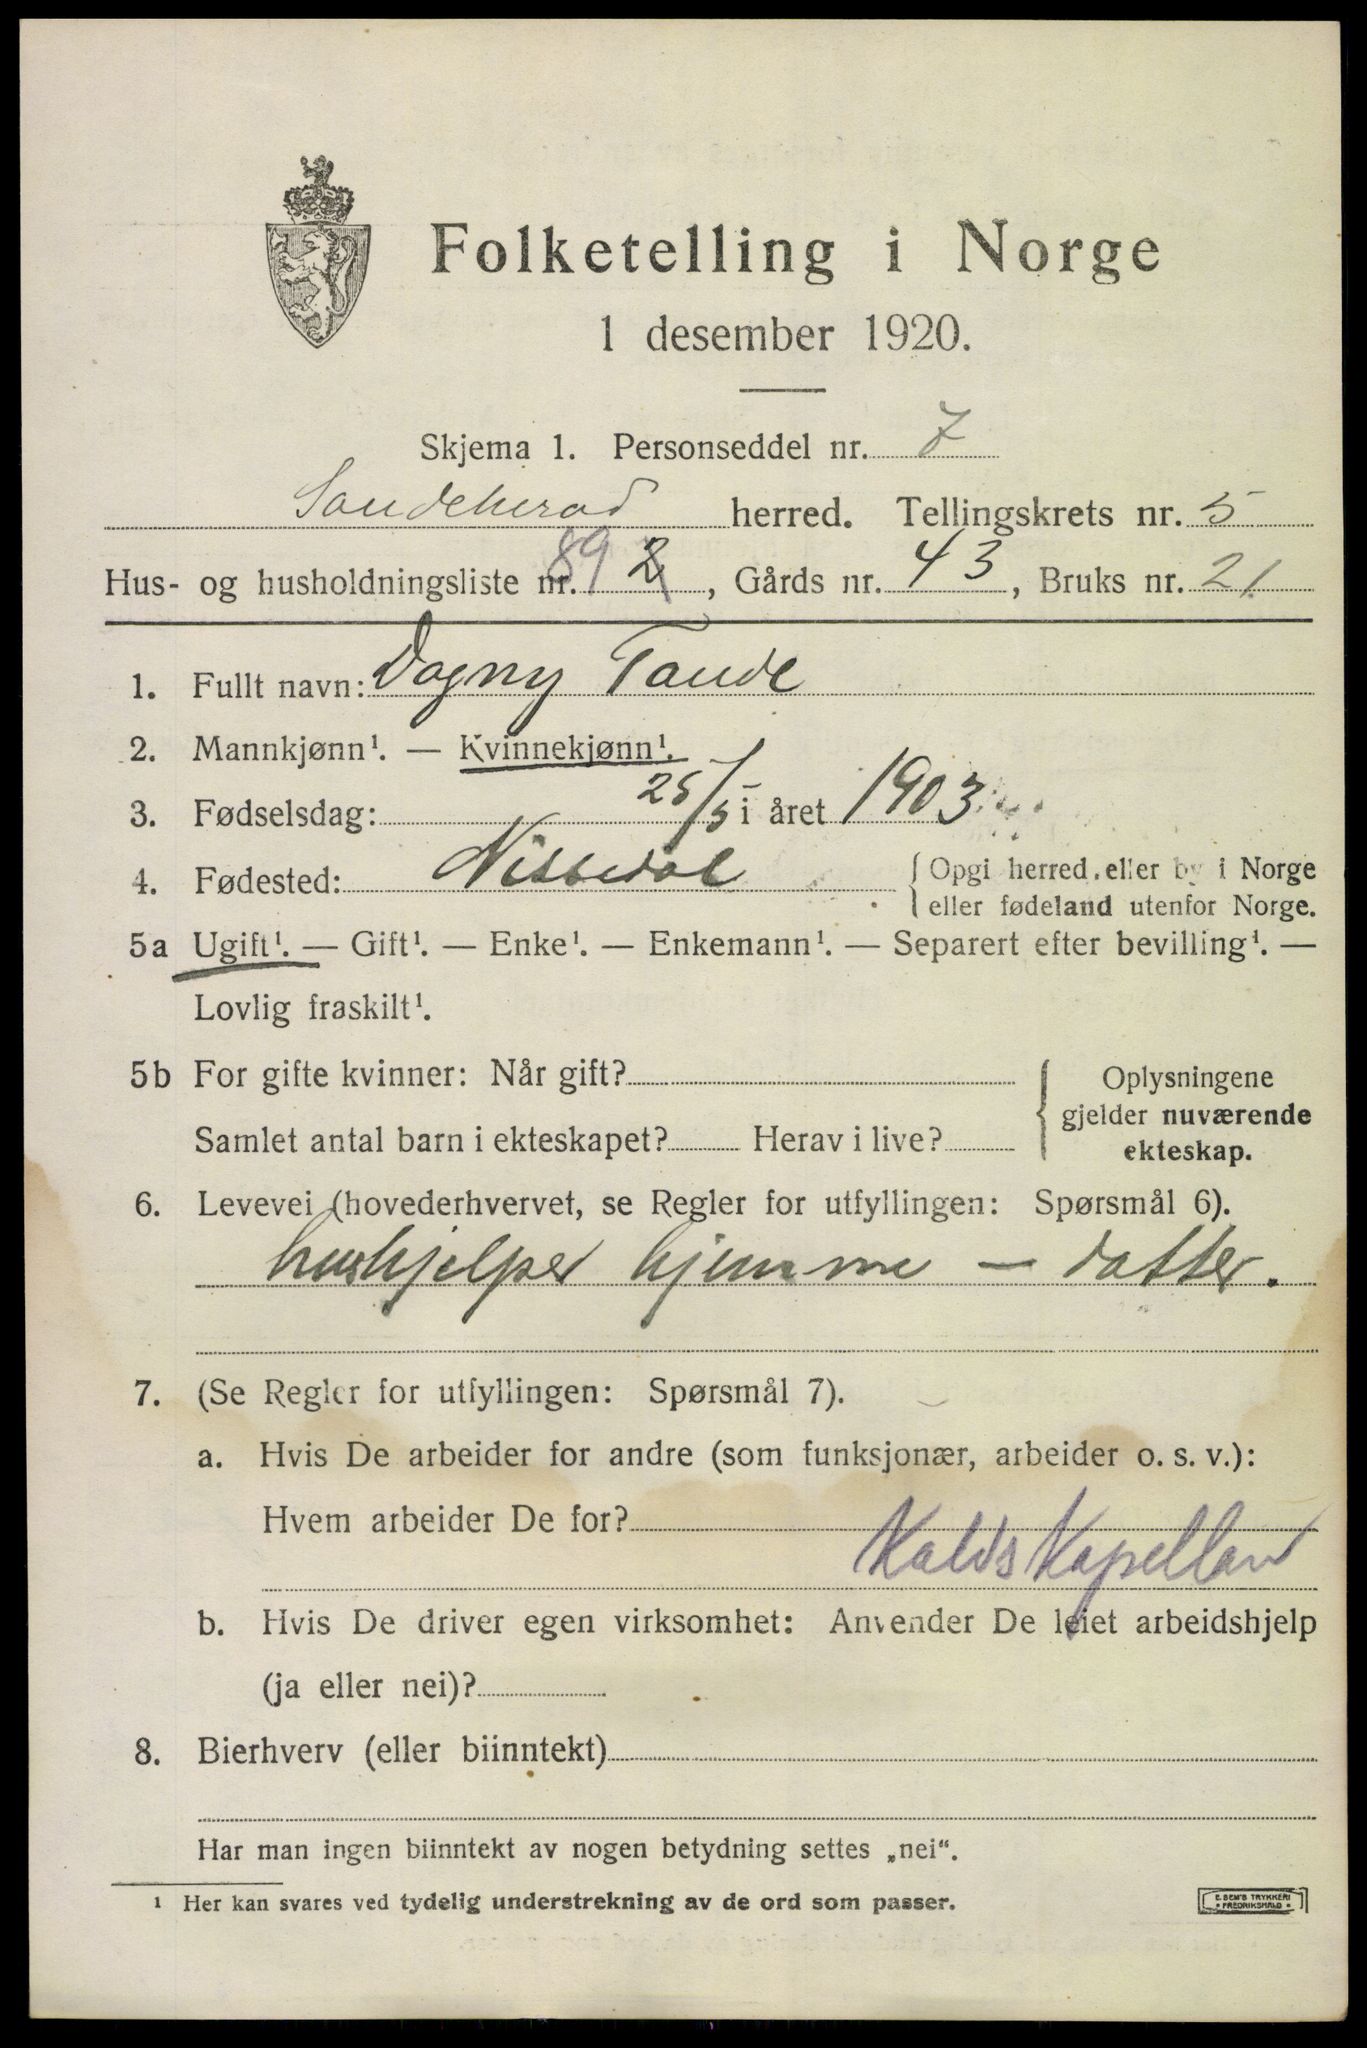 Folketelling i Norge
1 desember 1920.
Skjema 1. Personseddel nr. 7
Sandeherad herred. Tellingskrets nr. 5
Hus- og husholdningsliste nr. 89 2, Gårds nr. 43, Bruks nr. 21.
1. Fullt navn: Dagny Tande
2. Mannkjønn¹. — Kvinnekjønn¹.
3. Fødselsdag: 25/5 i året 1903
4. Fødested: Nissedal {Opgi herred eller by i Norge
eller fødeland utenfor Norge.
5a Ugift¹. — Gift¹. — Enke¹. — Enkemann¹. — Separert efter bevilling¹. —
Lovlig fraskilt¹.
5b For gifte kvinner: Når gift? { Oplysningene
gjelder nuværende
Samlet antal barn i ekteskapet? Herav i live?
ekteskap.
6. Levevei (hovederhvervet, se Regler for utfyllingen: Spørsmål 6).
hushjelper hjemme — datter.
7. (Se Regler for utfyllingen: Spørsmål 7).
a. Hvis De arbeider for andre (som funksjonær, arbeider o. s. v.):
Hvem arbeider De for?
Kapellan
b. Hvis De driver egen virksomhet: Anvender De leiet arbeidshjelp
(ja eller nei)?
8. Bierhverv (eller biinntekt)
Har man ingen biinntekt av nogen betydning settes „nei“.
¹ Her kan svares ved tydelig understrekning av de ord som passer.
E. SEM'S TRYKKERI
• FREDRIKSHALD •